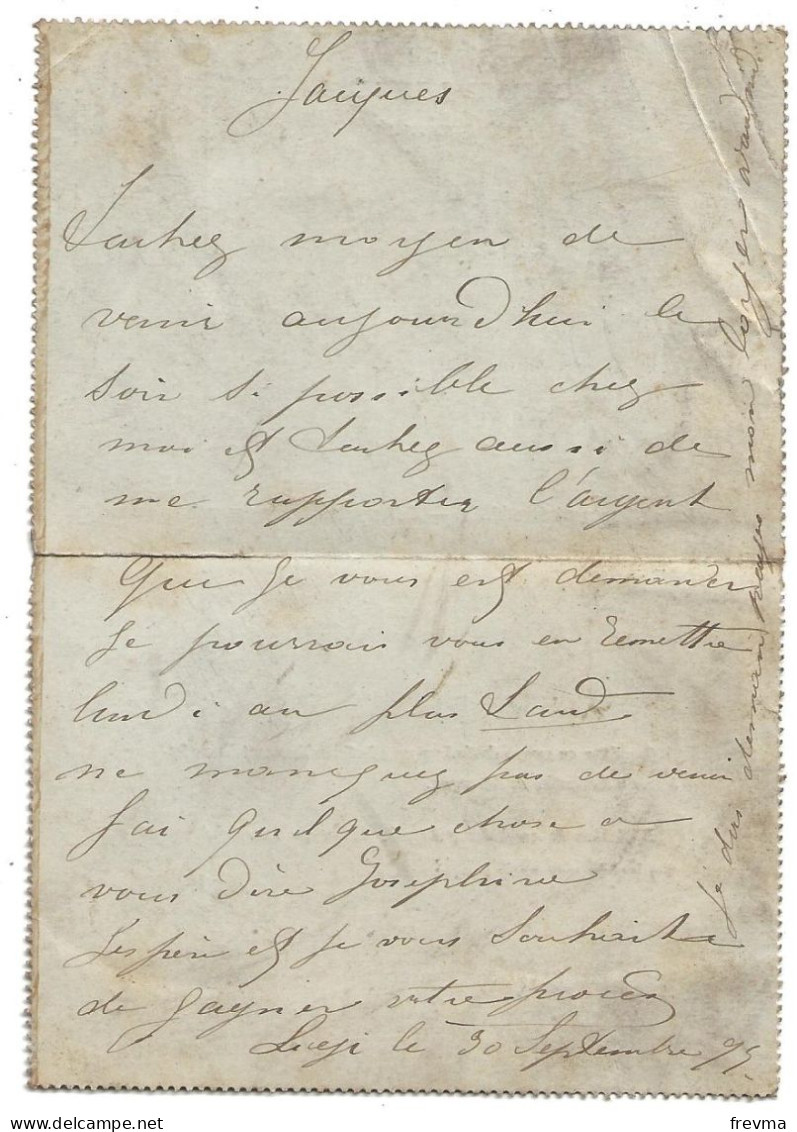 Jacques
Tachez moyen de
venir aujourd'hui le
soir si possible chez
moi est tachez aussi de
me rapporter l'argent
que je vous est demander
je pourrais vous en remettre
lundi au plus tard
ne manequez pas de venir
j'ai quelque chose a
vous dire Josephine
j'espère est je vous souhaite
de gagner votre procès
le 30 Septembre 95.
je dois demain payer mon loyer avant midi
frevma